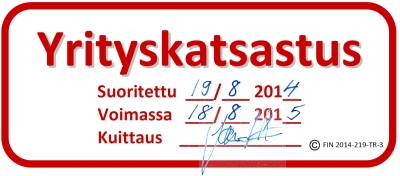 Yrityskatsastus
Suoritettu 19/8 2014
Voimassa 18/8 2015
Kuittaus
© FIN 2014-219-TR-3